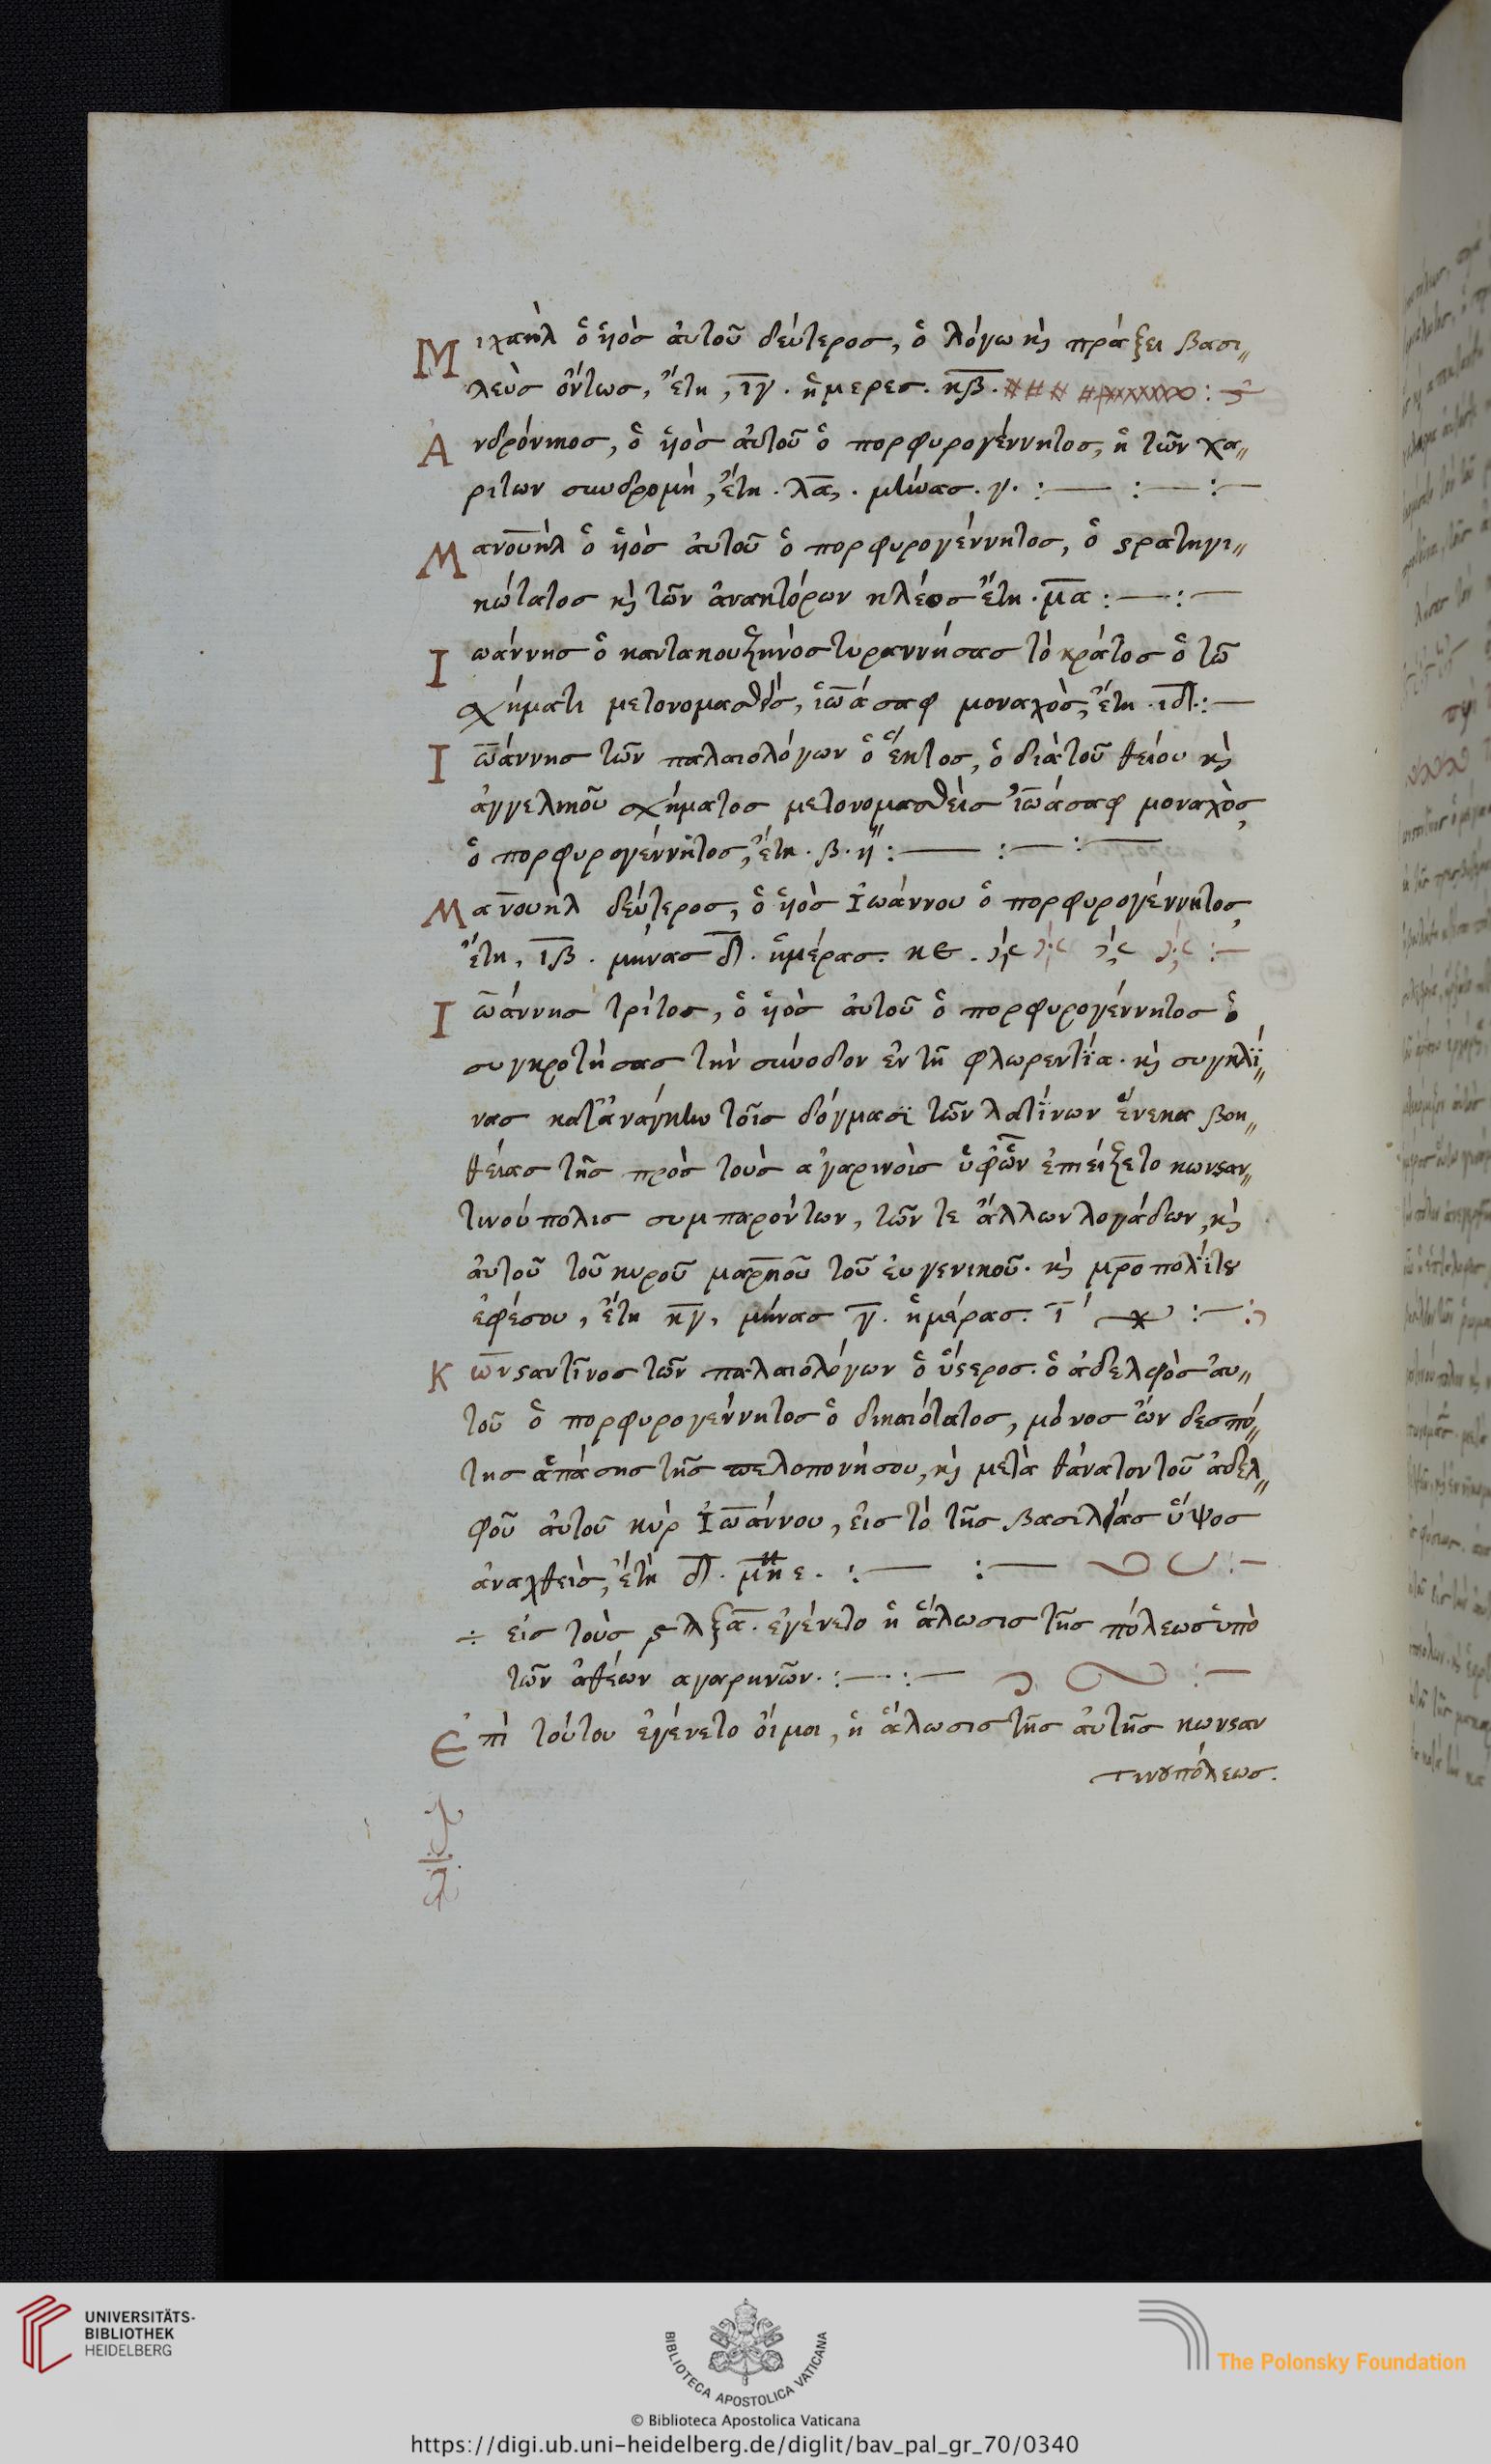 Μιχαὴλ ὁ ὑιὸς ἀυτοῦ δεύτερος, ὁ λόγω κὶ πράξει βασι〃
λεὺς ὄντως, ἔτη, ιγ. ἥμερες. κβ.
Ἀνδρόνικος, ὁ ὑιὸς ἀυτοῦ ὁ πορφυρογέννητος, ἡ τῶν χα〃
ρίτων συνδρομὴ, ἔτη. λα. μῆνας. γ. :— :— :—
Μανουὴλ ὁ ὑιὸς ἀυτοῦ ὁ πορφυρογέννητος, ὁ ϛρατηγι〃
κώτατος κὶ τῶν ἀνακτόρων κλέος ἔτη. μα :— :—
Ιωάννης ὁ καντακουζηνὸς τυραννήσας τὸ κράτος ὁ τῶ
σχήματι μετονομασθεὶς, ἰωάσαφ μοναχὸς, ἔτη. ιδ. :—
Ιωάννης τῶν παλαιολόγων ὁ ἕκτος, ὁ διὰ τοῦ θείου κὶ
ἀγγελικοῦ σχήματος μετονομασθεὶς ἰωάσαφ μοναχὸς,
ὁ πορφυρογέννητος, ἔτη. β. :— :— :—
Μανουὴλ δεύτερος, ὁ ὑιὸς Ἰωάννου ὁ πορφυρογέννητος,
ἔτη, ιβ. μήνας δ. ἡμέρας. κε. :—
Ιωάννης τρίτος, ὁ ὑιὸς ἀυτοῦ ὁ πορφυρογέννητος ὁ
συγκροτήσας τὴν σύνοδον ἐν τῆ φλωρεντία. κὶ συγκλί〃
νας κατ ἀνάγκην τοῖς δόγμασι τῶν λατίνων ἕνεκα βοη〃
θείας τῆς πρὸς τοὺς αγαρινοὶς ὑφ ὧν ἐπιέζετο κωνϛαν〃
τινούπολις συμπαρόντων, τῶν τε ἄλλων λογάδων, κὶ
ἀυτοῦ τοῦ κυροῦ μαρκοῦ τοῦ ἐυγενικοῦ. κὶ μροπολίτȣ
ἐφέσου, ἔτη κγ, μήνας γ. ἡμέρας. ι :—
Κωνϛαντῖνος τῶν παλαιολόγων ὁ ὕϛερος. ὁ ἀδελφὸς ἀυ〃
τοῦ ὁ πορφυρογέννητος ὁ δικαιότατος, μόνος ὢν δεσπό〃
της ἁπάσης τῆς πελοπονήσου, κὶ μετὰ θάνατον τοῦ ἀδελ〃
φοῦ ἀυτοῦ κὺρ Ἰωάννου, εἰς τὸ τῆς βασιλείας ὕψος
ἀναχθεὶς, ἔτη δ. μη ε. :— :—
÷ εἰς τοὺς ϛλξα. ἐγένετο ἡ ἅλωσις τῆς πόλεως ὑπὸ
τῶν ἀθέων αγαρηνῶν. :— :—
Ἐπὶ τούτου ἐγένετο ὄιμοι, ἡ ἅλωσις τῆς ἀυτῆς κωνϛαν
τινȣπόλεως.
UNIVERSITÄTS-
BIBLIOTHEK
HEIDELBERG
BIBLIOTECA APOSTOLICA VATICANA
The Polonsky Foundation
© Biblioteca Apostolica Vaticana
https://digi.ub.uni-heidelberg.de/diglit/bav_pal_gr_70/0340